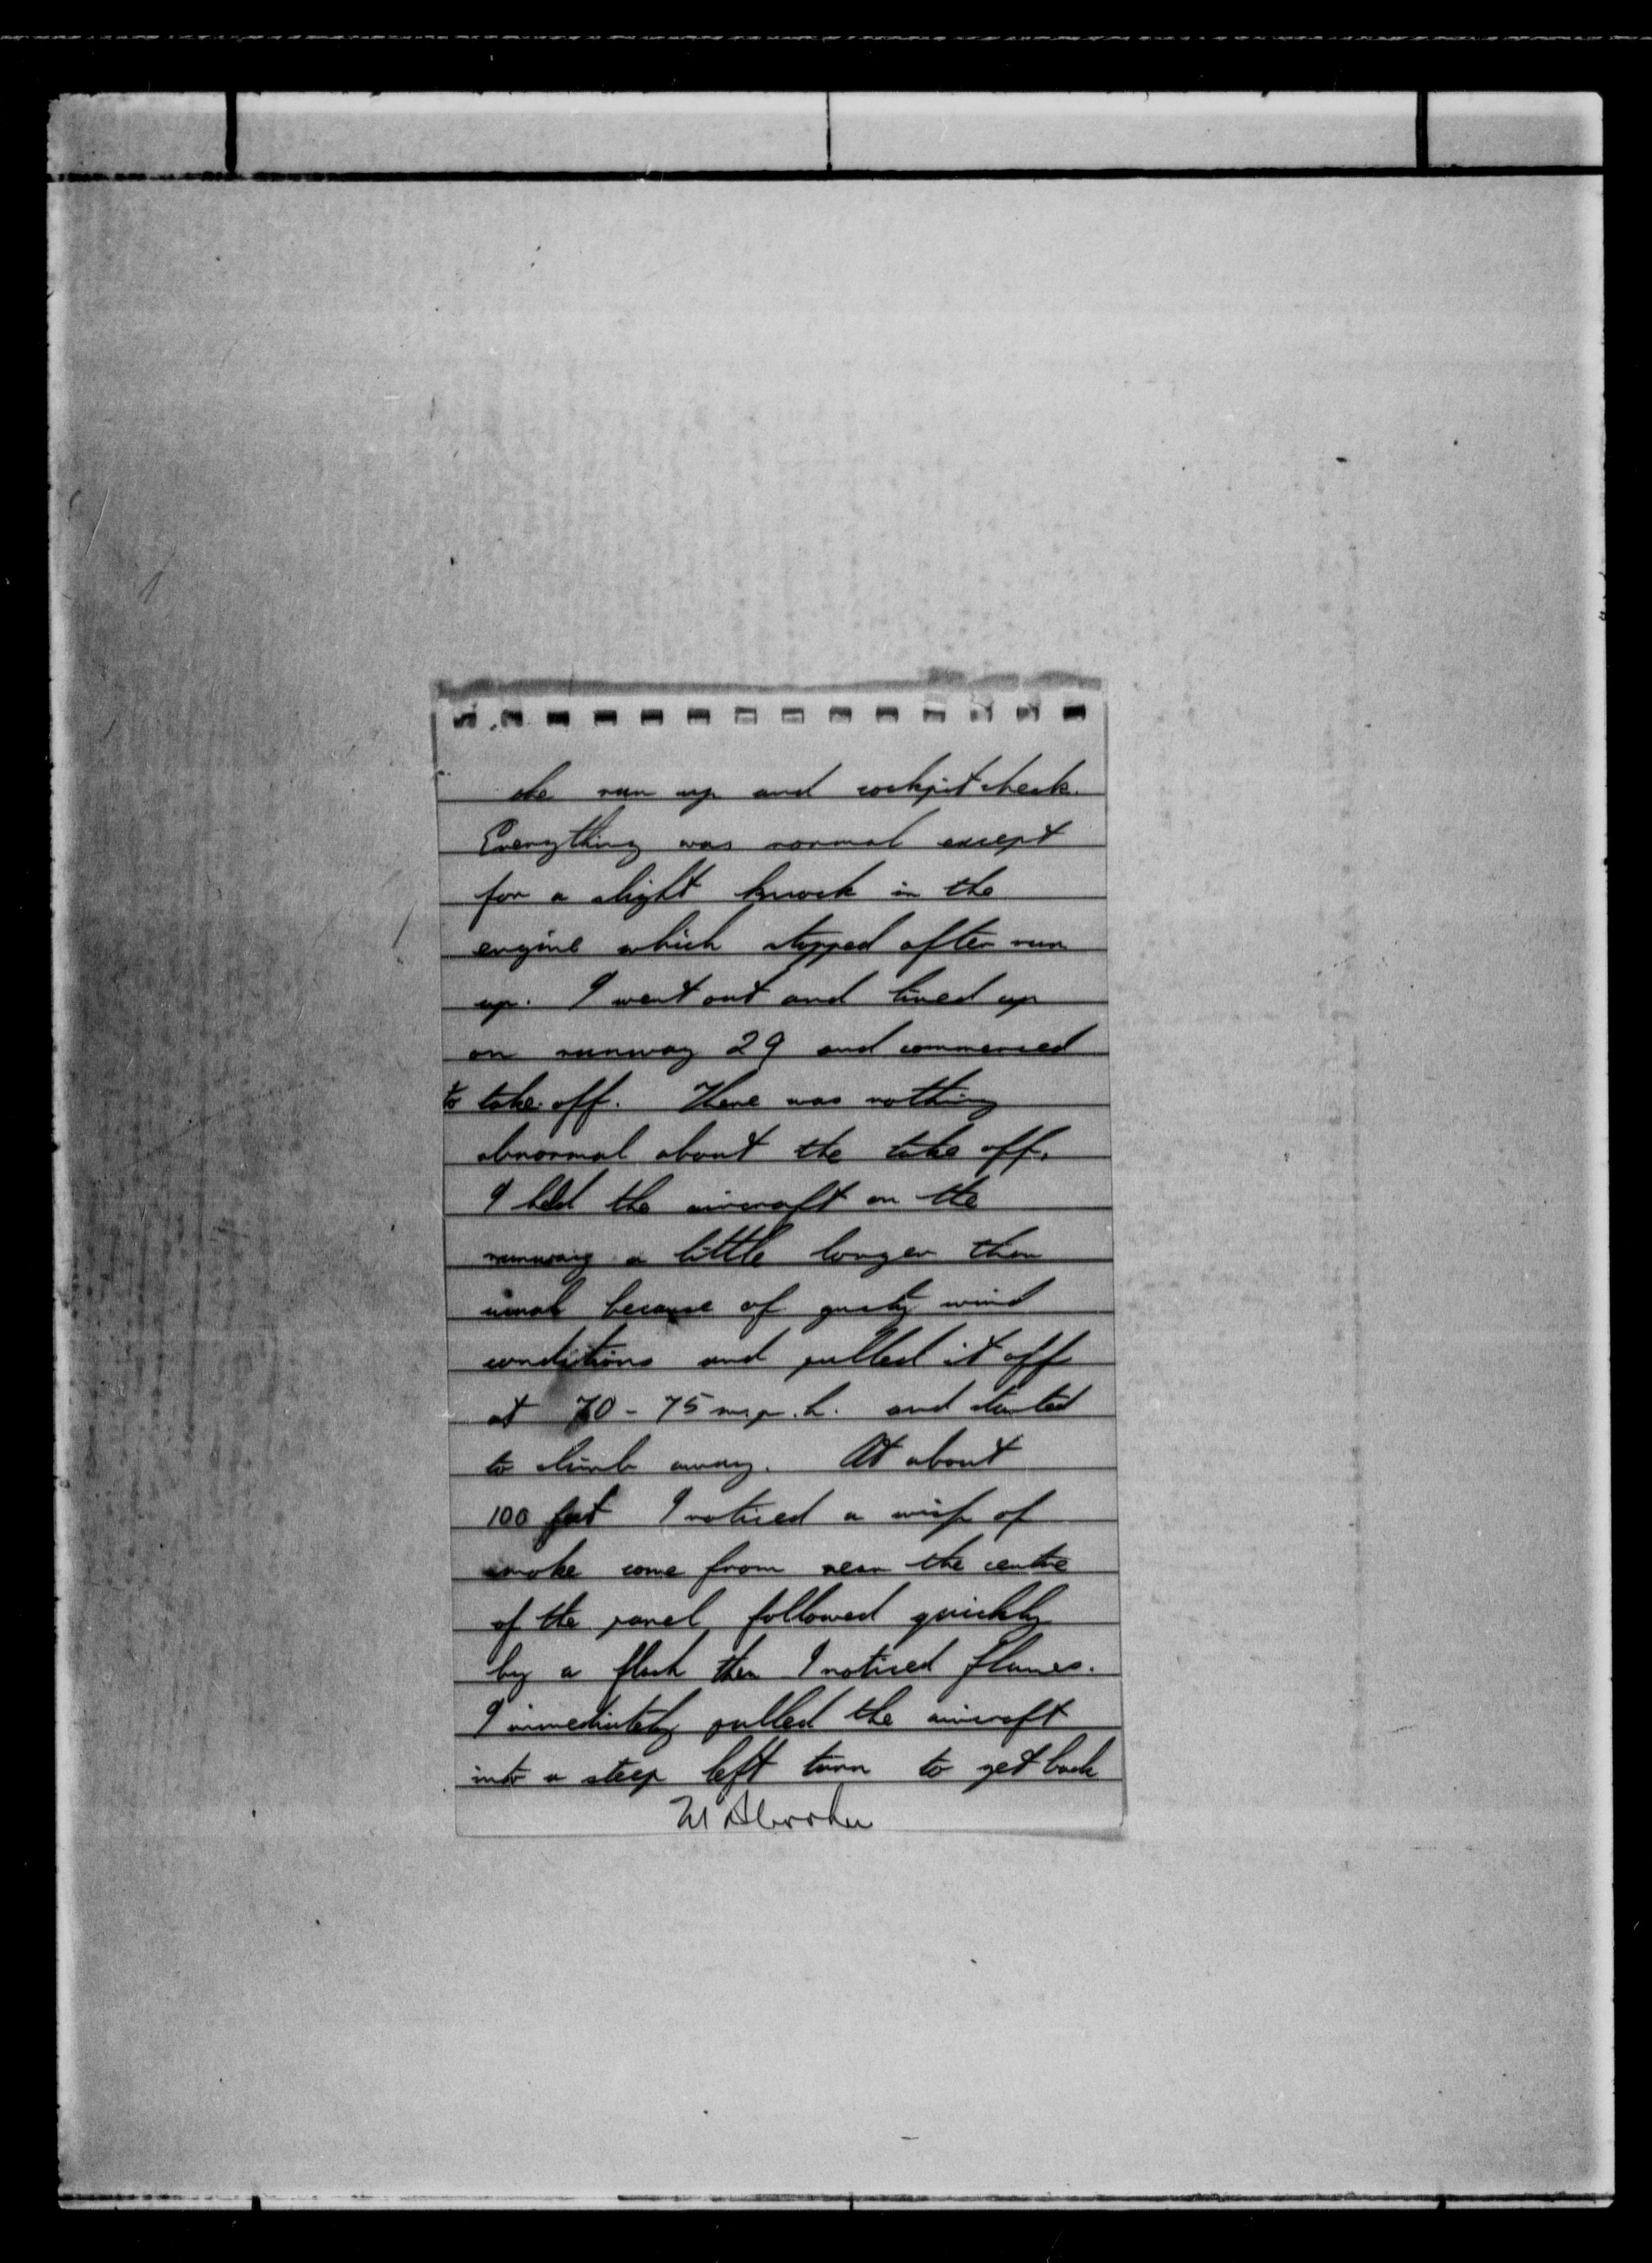 the run up and cockpit check.
Everything was normal except
for a slight knock in the
engine which stopped after run
up. I went out and lined up
on runway 29 and commenced
to take off. There was nothing
abnormal about the take off.
I held the aircraft on the
runway a little longer than
usual because of gusty wind
conditions and pulled it off
at 70 - 75 m.p.h. and started
to climb away. At about
100 feet I noticed a wisp of
smoke come from near the centre
of the panel followed quickly
by a flash then I noticed flames.
I immediately pulled the aircraft
into a steep left turn to get back